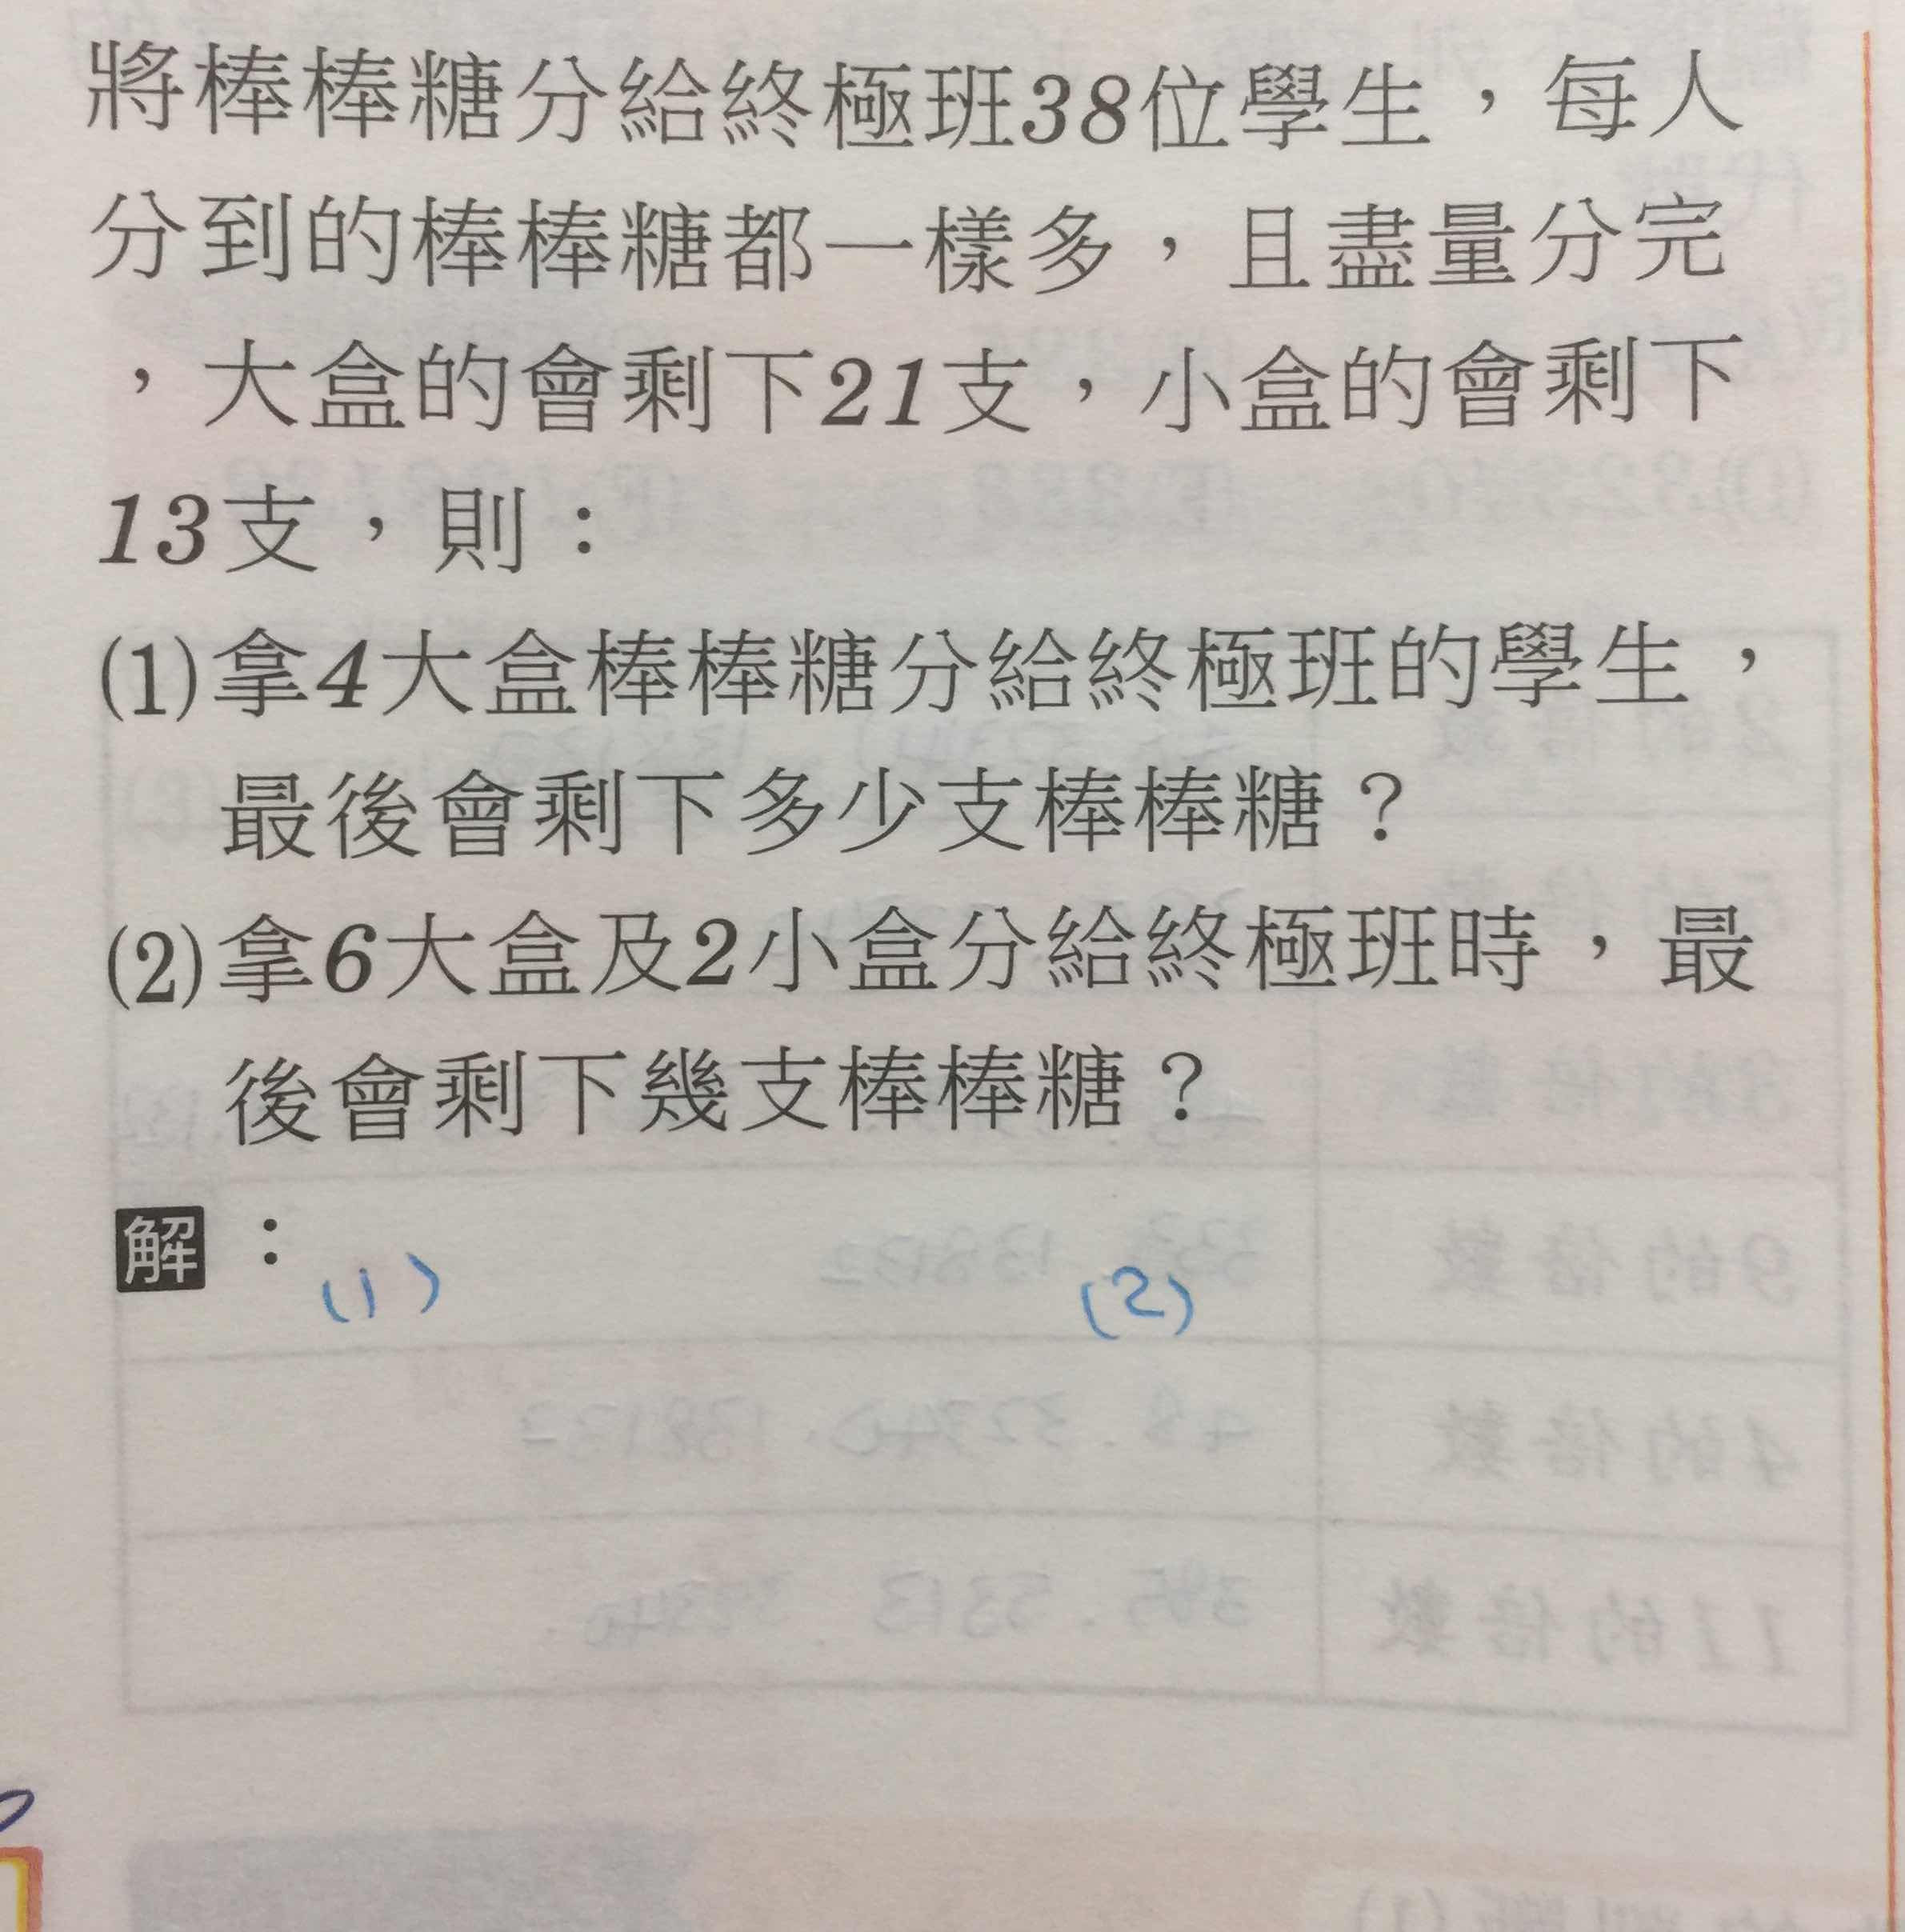 將棒棒糖分給終極班38位學生，每人
分到的棒棒糖都一樣多，且盡量分完
，大盒的會剩下21支，小盒的會剩下
13支，則：
(1)拿4大盒棒棒糖分給終極班的學生，
最後會剩下多少支棒棒糖？
(2)拿6大盒及2小盒分給終極班時，最
後會剩下幾支棒棒糖？
解：
(1) (2)